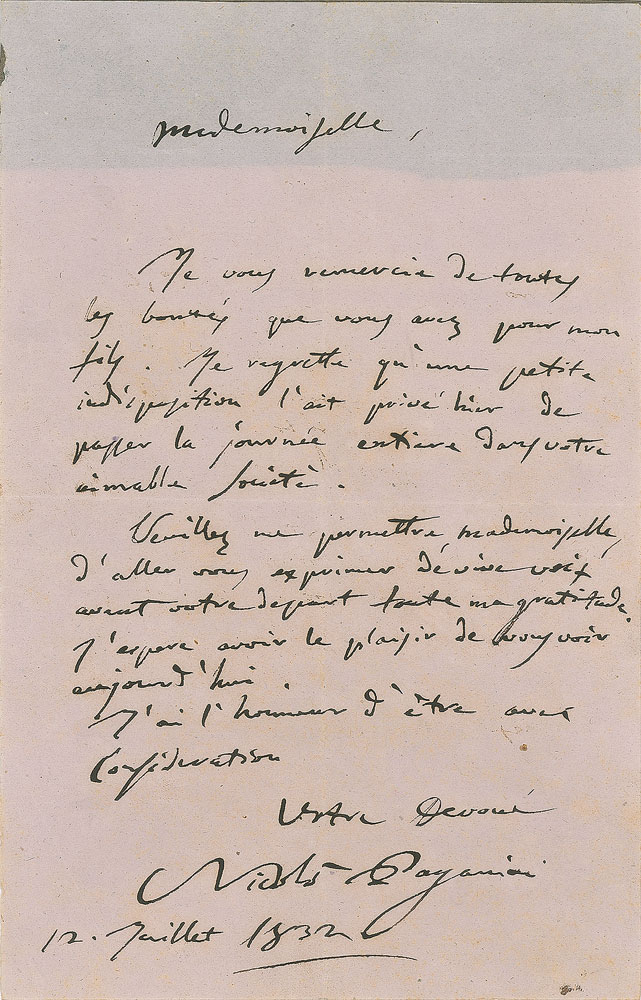 mademoiselle,
Je vous remercie de toutes
les bontés que vous avez pour mon
fils. Je regrette qu'une petite
indisposition l'ait privé hier de
passer la journée entiere dans votre
aimable Société.
Veuillez me permettre mademoiselle,
d'aller vous exprimer de vive voix
avant votre depart toute ma gratitude.
J'espere avoir le plaisir de vous voir
aujourd'hui.
J'ai l'honneur d'être avec
Considération
Votre Devoué
Nicolò Paganini
12. Juillet 1832